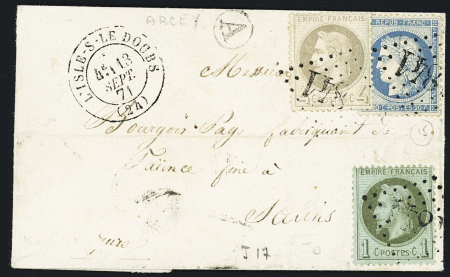 ARCEY
A
L'ISLE-S-LE-DOUBS
4E
13
SEPT.
71
(24)
EMPIRE FRANÇAIS
REPUB. FRANC.
4
Messieurs
Bourgeois Pays fabriquant de
Faïence fine à
Salins
Jura
EMPIRE FRANÇAIS
1 C POSTES C 1
J 17